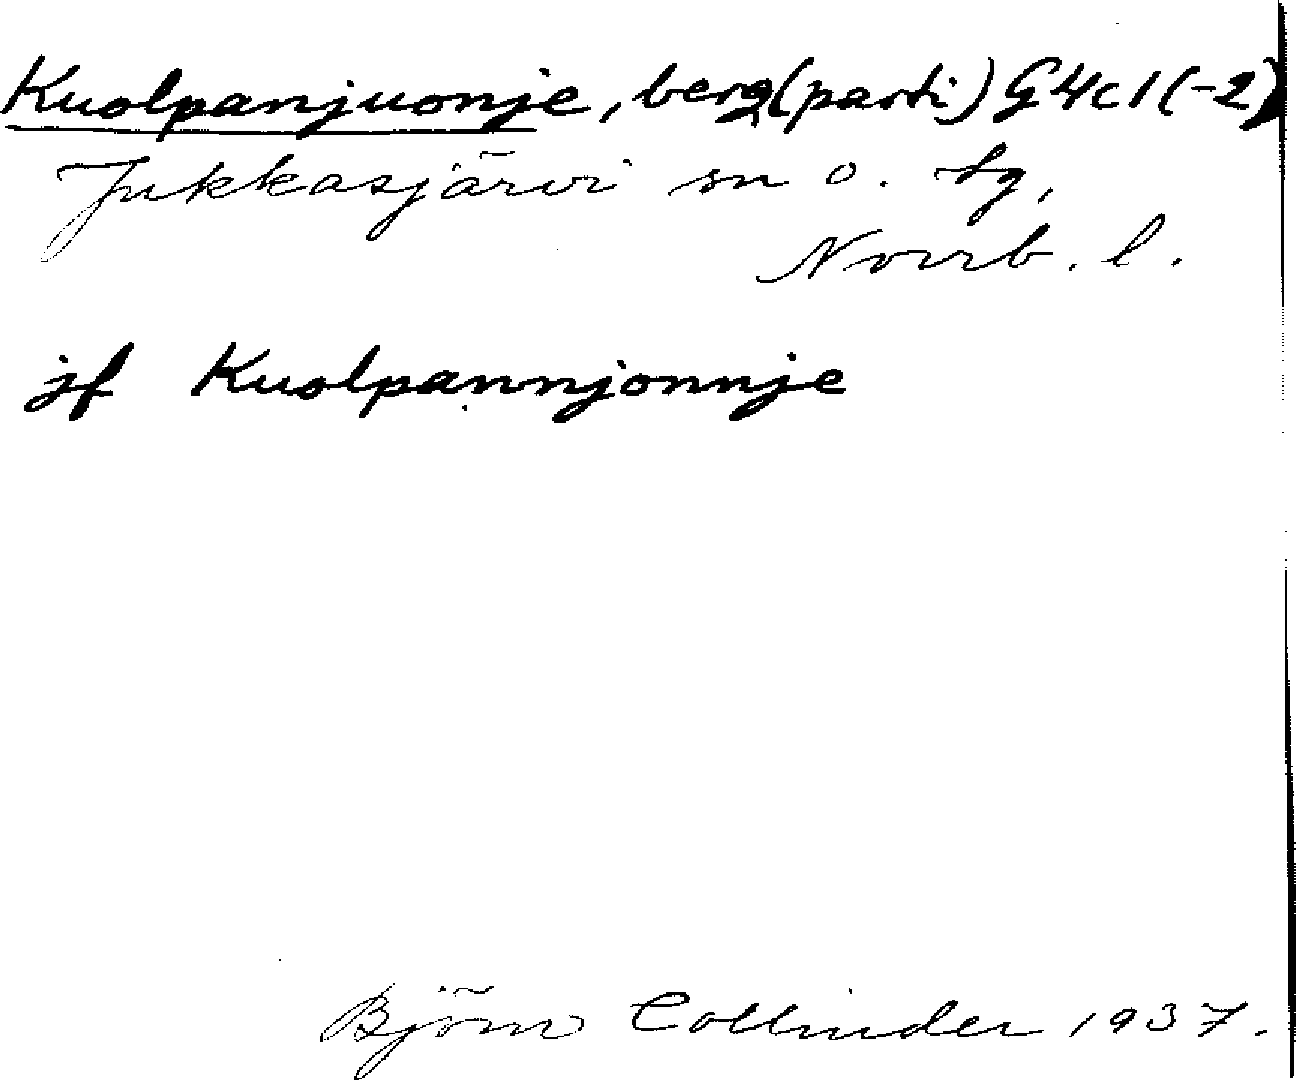 Kuolpanjuonje, berg(parti) G4c1(-2)
Jukkasjärvi sn o. tg,
Norrb. l.
jf Kuolpannjonnje
Björn Collinder 1937.